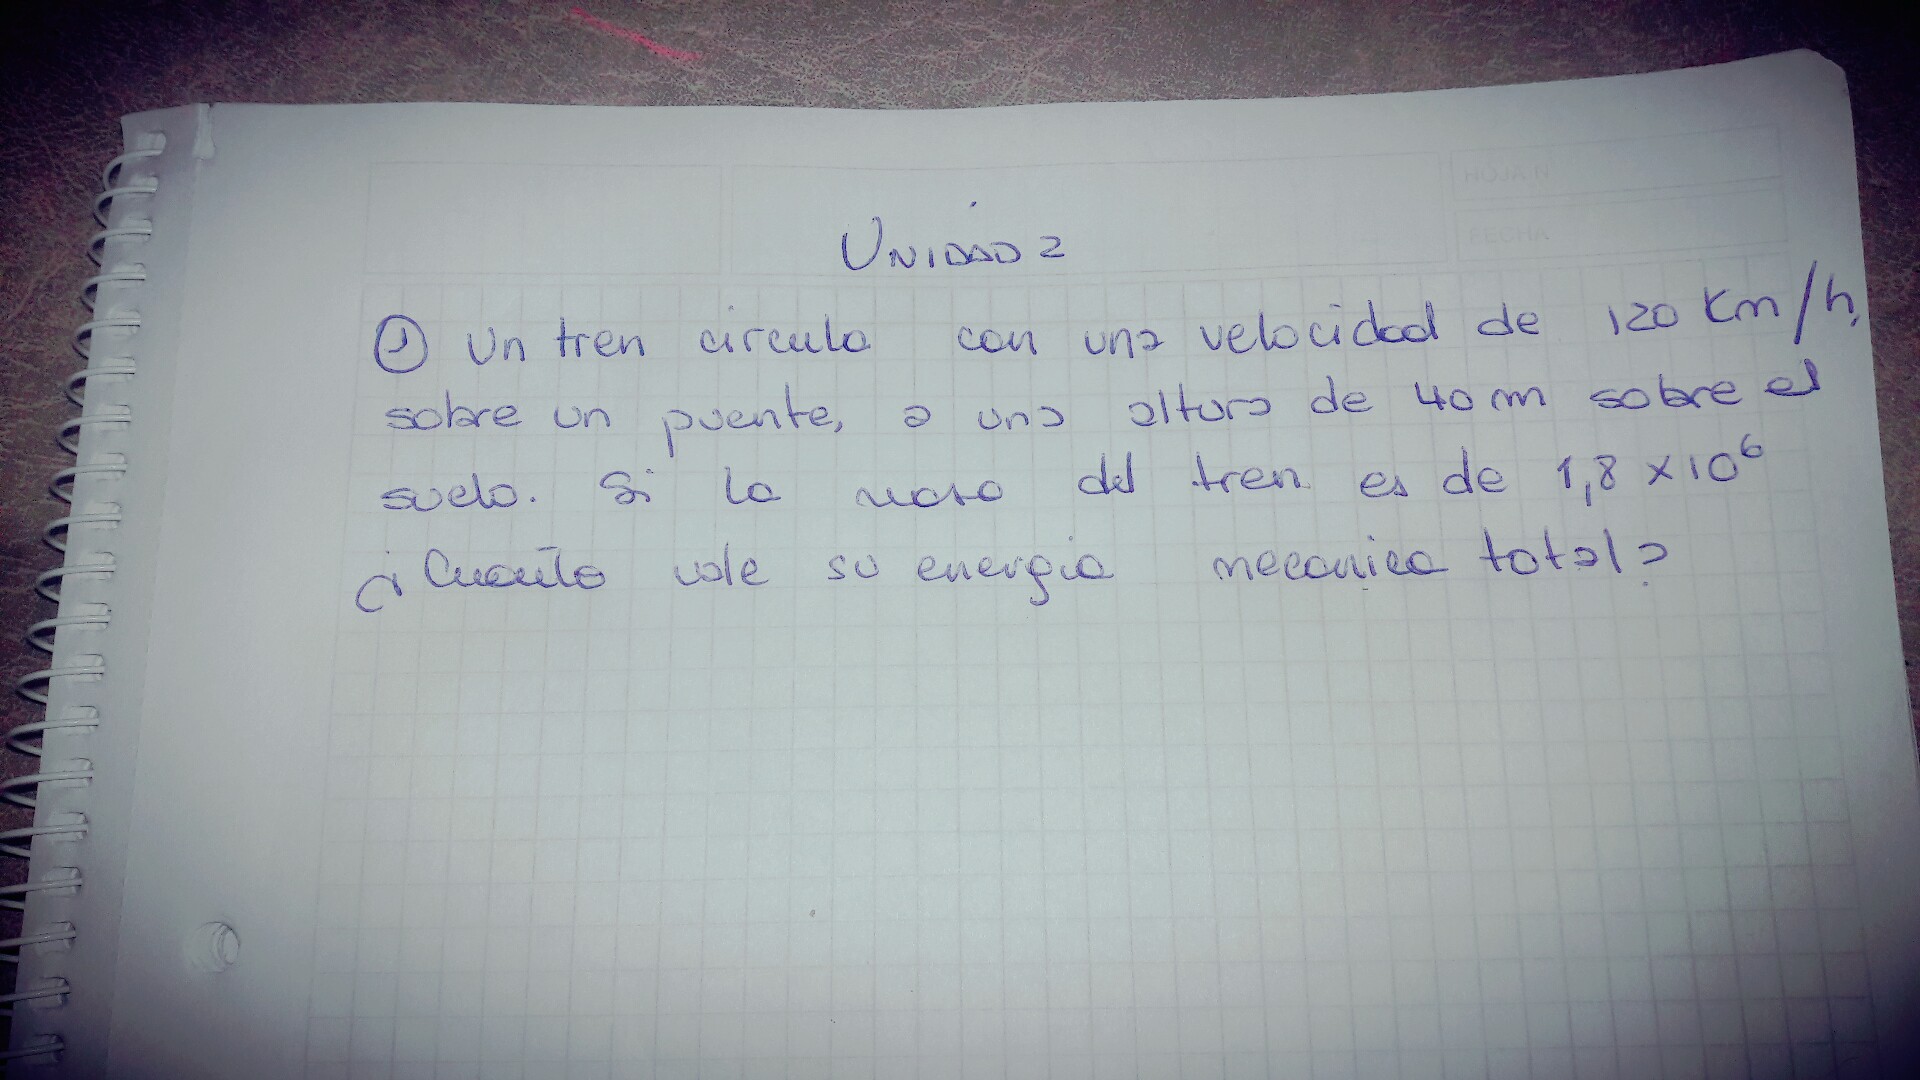 HOJA N
FECHA
UNIDAD 2
① Un tren circula con una velocidad de 120 Km/h,
sobre un puente, a una altura de 40 m sobre el
suelo. Si la masa del tren es de 1,8 x 10⁶
¿Cuanto vale su energia mecanica total?